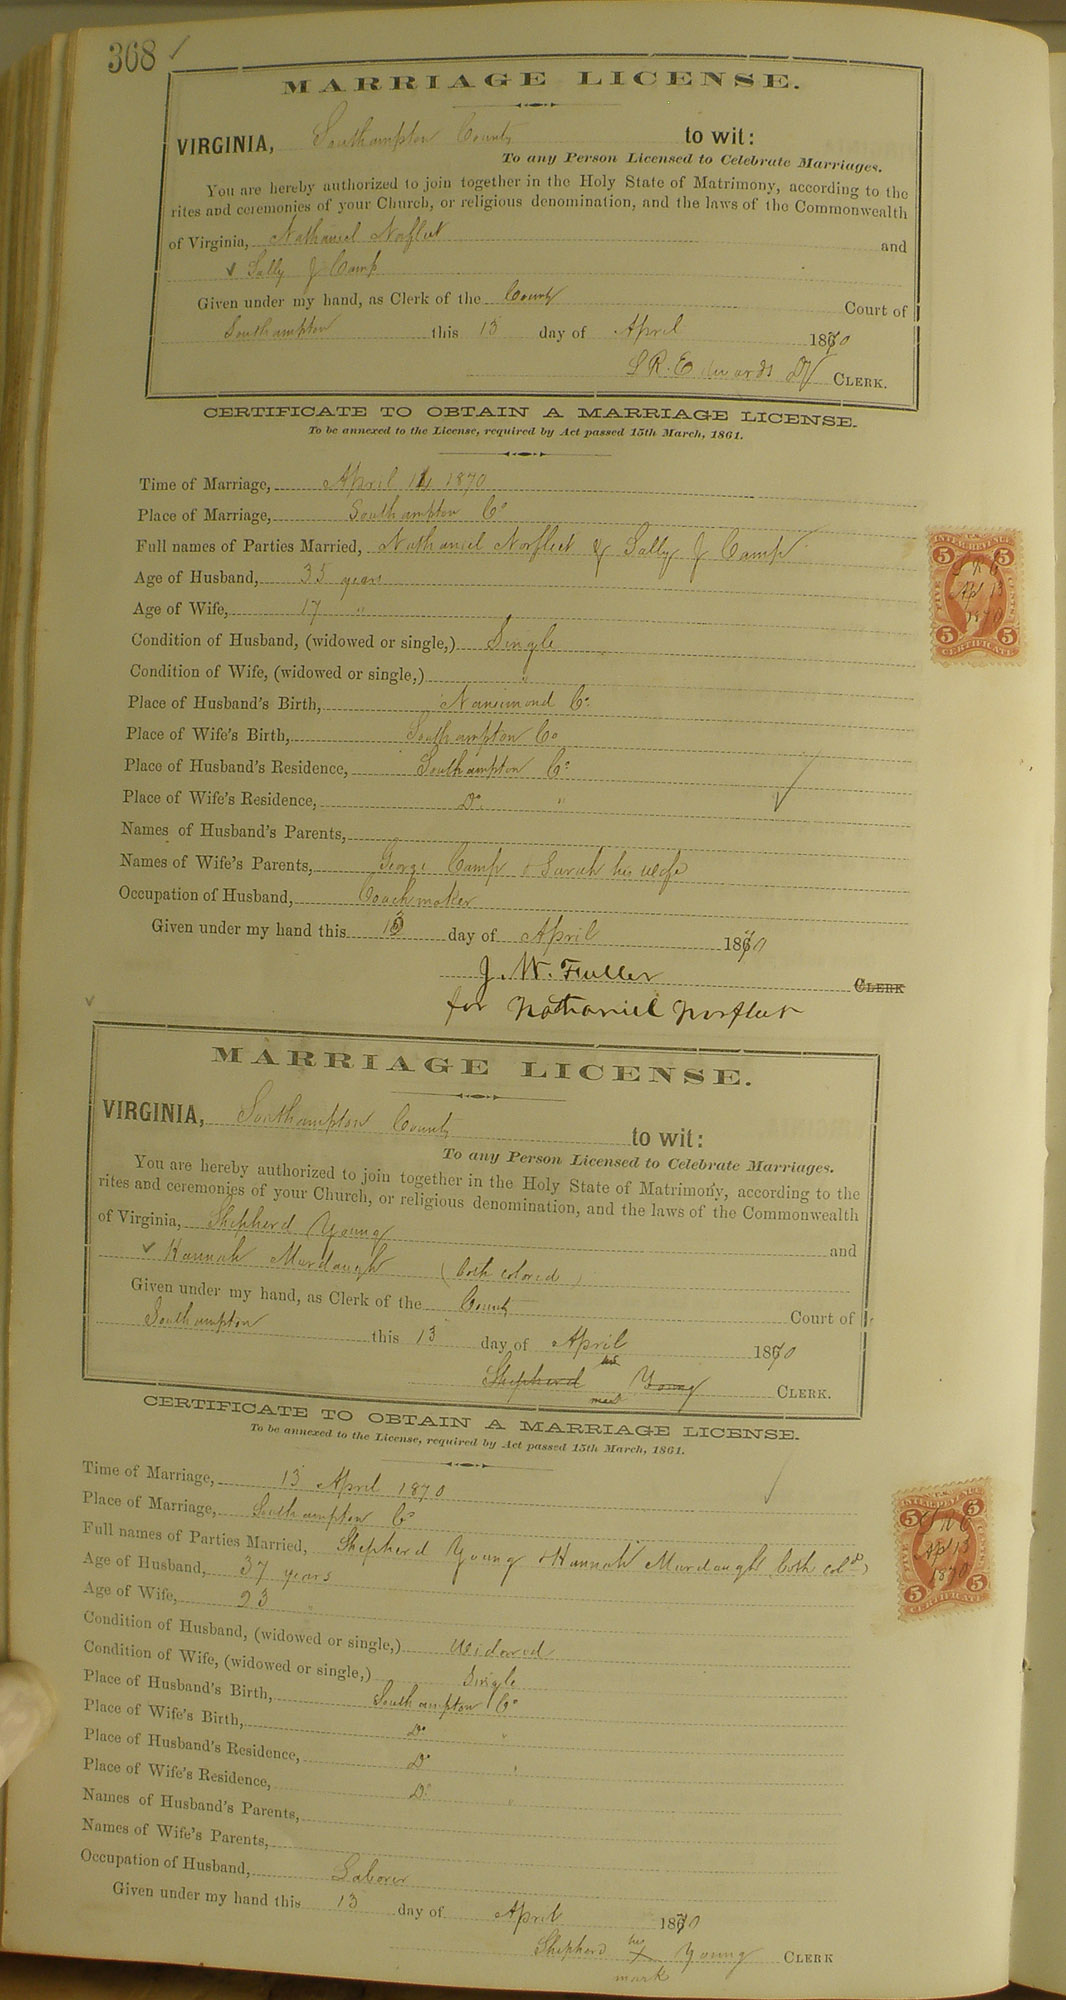 368 ✓
MARRIAGE LICENSE.
VIRGINIA, Southampton County to wit:
To any Person Licensed to Celebrate Marriages.
You are hereby authorized to join together in the Holy State of Matrimony, according to the
rites and ceremonies of your Church, or religious denomination, and the laws of the Commonwealth
of Virginia, Nathaniel Norfleet and
✓ Sally J Camp
Given under my hand, as Clerk of the County Court of
Southampton this 13 day of April 1870
S R. Edwards CLERK.
CERTIFICATE TO OBTAIN A MARRIAGE LICENSE.
To be annexed to the License, required by Act passed 15th March, 1861.
Time of Marriage, April 14 1870
Place of Marriage, Southampton Co
Full names of Parties Married, Nathaniel Norfleet & Sally J Camp
Age of Husband, 35 years
Age of Wife, 17 "
Condition of Husband, (widowed or single,) Single
Condition of Wife, (widowed or single,) "
Place of Husband's Birth, Nansimond Co
Place of Wife's Birth, Southampton Co
Place of Husband's Residence, Southampton Co
Place of Wife's Residence, Do "
Names of Husband's Parents,
Names of Wife's Parents, George Camp & Sarah his wife
Occupation of Husband, Coachmaker
Given under my hand this 13 day of April 1870
J. W. Fuller CLERK
for Nathaniel Norfleet
INTER. REVENUE
5 5
S R E
Apl 13
1870
FIVE CENTS
5 5
CERTIFICATE
MARRIAGE LICENSE.
VIRGINIA, Southampton County to wit:
To any Person Licensed to Celebrate Marriages.
You are hereby authorized to join together in the Holy State of Matrimony, according to the
rites and ceremonies of your Church, or religious denomination, and the laws of the Commonwealth
of Virginia, Shepherd Young and
✓ Hannah Murdaugh (both colored)
Given under my hand, as Clerk of the County Court of
Southampton this 13 day of April 1870
his
Shepherd Young CLERK.
mark
CERTIFICATE TO OBTAIN A MARRIAGE LICENSE.
To be annexed to the License, required by Act passed 15th March, 1861.
Time of Marriage, 13 April 1870
Place of Marriage, Southampton Co
Full names of Parties Married, Shepherd Young & Hannah Murdaugh (both cold)
Age of Husband, 37 years
Age of Wife, 23 "
Condition of Husband, (widowed or single,) Widowed
Condition of Wife, (widowed or single,) Single
Place of Husband's Birth, Southampton Co
Place of Wife's Birth, Do "
Place of Husband's Residence, Do "
Place of Wife's Residence, Do "
Names of Husband's Parents,
Names of Wife's Parents,
Occupation of Husband, Laborer
Given under my hand this 13 day of April 1870
his
Shepherd X Young CLERK
mark
INTER. REVENUE
5 5
S R E
Apl 13
1870
FIVE CENTS
5 5
CERTIFICATE